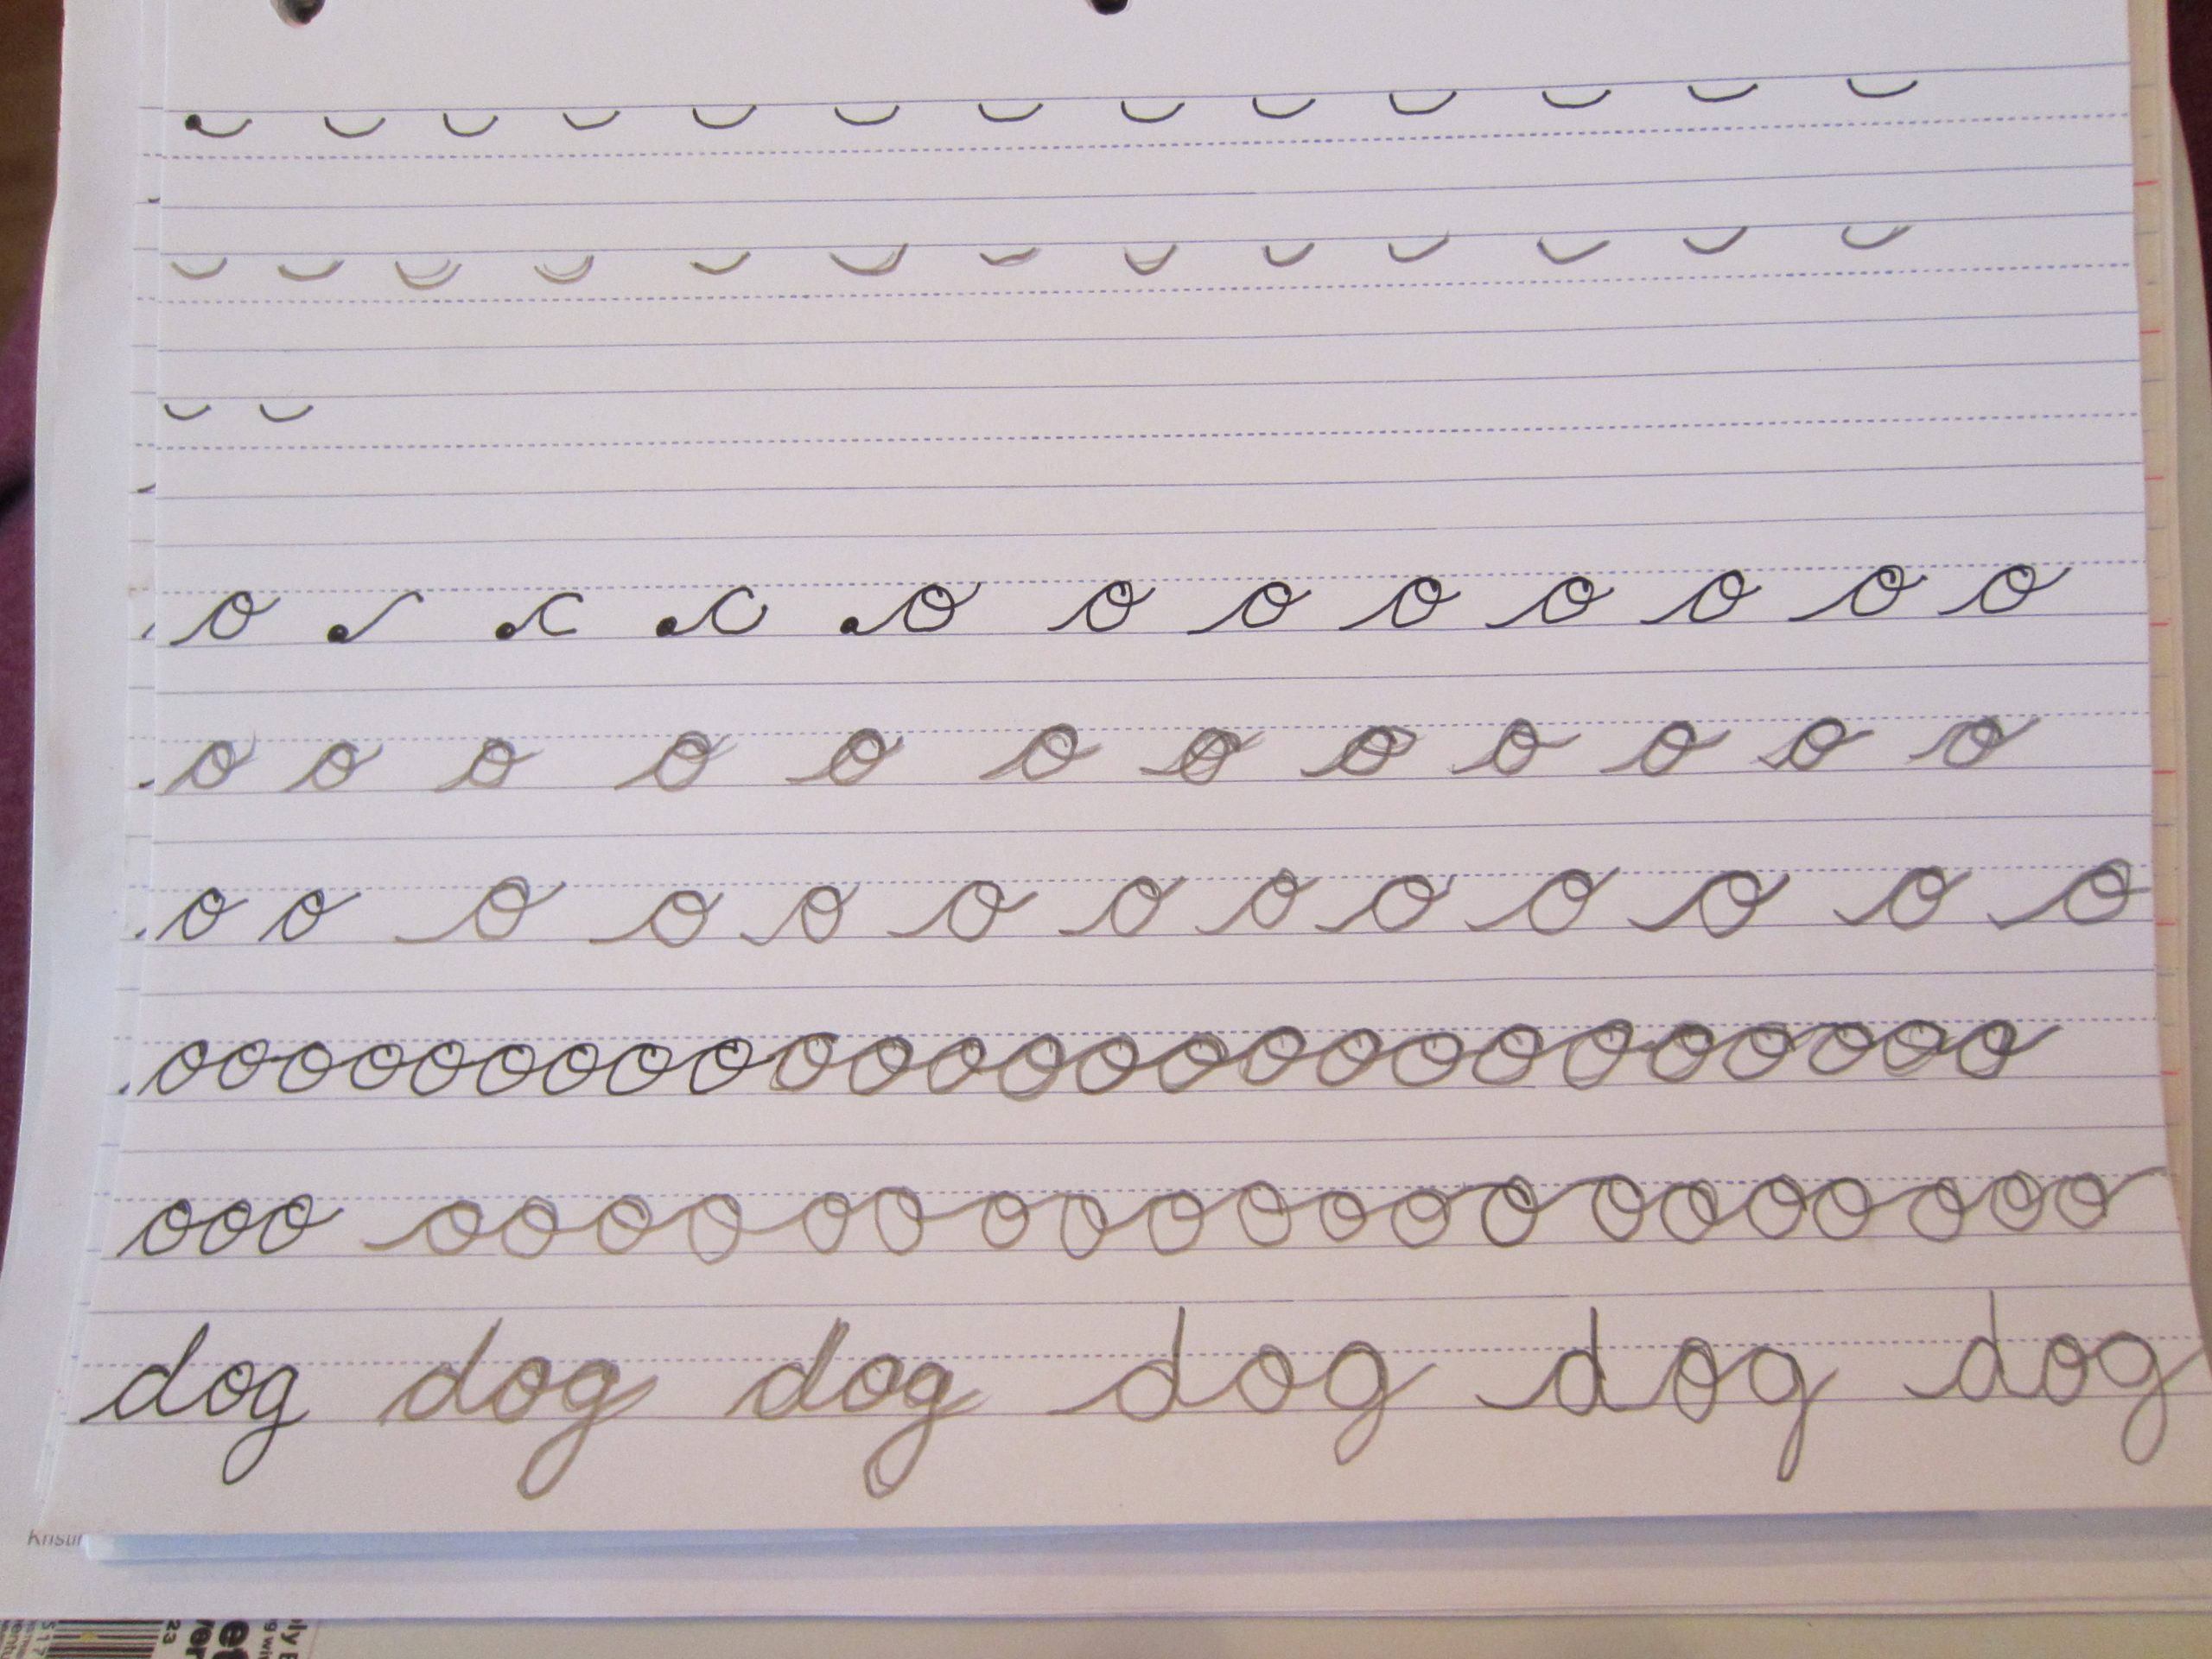 o o o o o o o o o
o o o o o o o o o o o o
o o o o o o o o o o o o o
ooooooooooooooooooooooooo
ooo oooooooooooooooooooo
dog dog dog dog dog dog
23